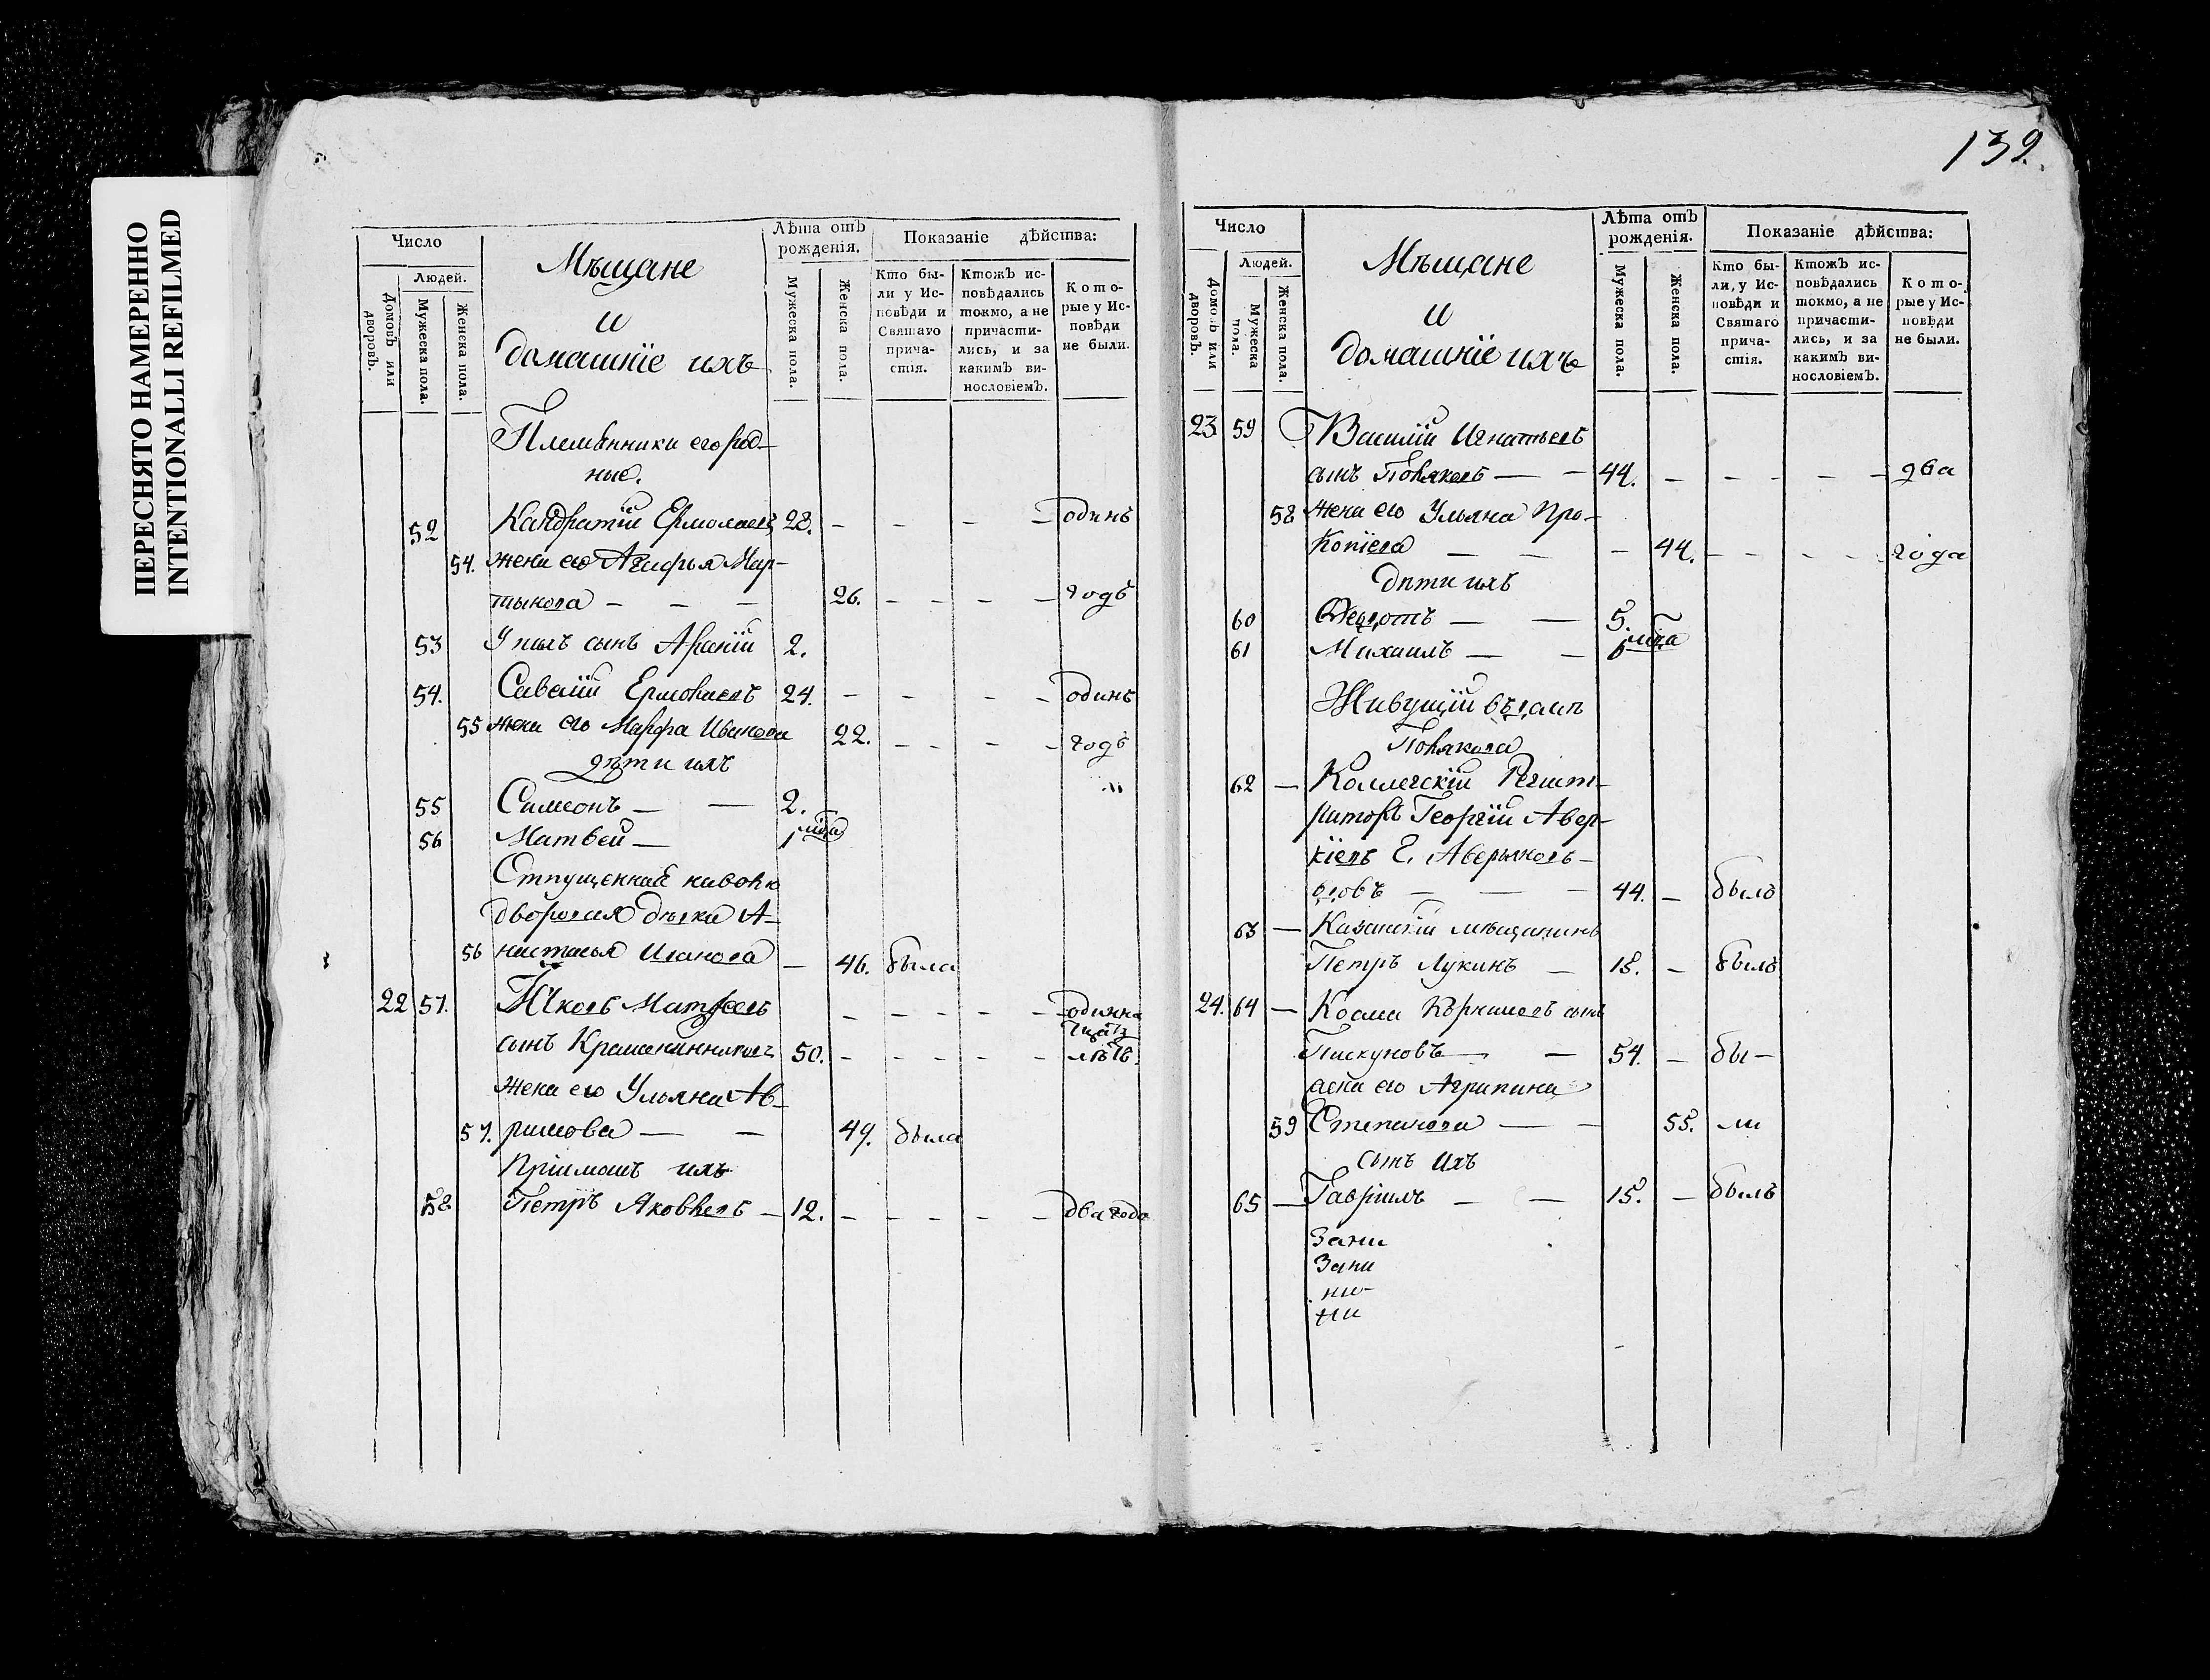 ПЕРЕСНЯТО НАМЕРЕННО
INTENTIONALLI REFILMED
Число
Людей.
Домовъ или дворовъ.
Мужеска пола.
Женска пола.
Мѣщане
и
домашніе ихъ
Лѣта отъ рожденія.
Мужеска пола.
Женска пола.
Показаніе дѣйства:
Кто были у Исповѣди и Святаго причастія.
Ктожъ исповѣдались токмо, а не причастились, и за какимъ винословіемъ.
Которые у Исповѣди не были.
Племянники его род-
ные.
52 Кандратій Ермолаевъ 28. – – – – одинъ
54. жена его Агафья Мар-
тынова – – – 26. – – – – годъ
53 У нихъ сынъ 2.
54. Савелій Ермолаевъ 24. – – – – одинъ
55 жена его Марфа Иванова 22. – – – – годъ
дѣти ихъ
55 Симеонъ – – 2.
56 Матвей – 1
Отпущенная на волю
дворовая дѣвка А-
56 настасья Иванова – 46. была
22 57. Яковъ Матвеевъ – – – – – одинна
цать
сынъ 50. – – – – – лѣтъ.
жена его Ульяна Ав-
57. рамова – – 49. была
Пріимошъ ихъ
58 Петръ Яковлевъ – 12. – – – – – два года
139.
Число
Людей.
Домовъ или дворовъ.
Мужеска пола.
Женска пола.
Мѣщане
и
домашніе ихъ
Лѣта отъ рожденія.
Мужеска пола.
Женска пола.
Показаніе дѣйства:
Кто были, у Исповѣди и Святаго причастія.
Ктожъ исповѣдались токмо, а не причастились, и за какимъ винословіемъ.
Которые у Исповѣди не были.
23. 59 Василій Игнатьевъ
сынъ Поляковъ – – 44. – – – – – два
58 жена его Ульяна Про-
копіева – – – 44. – – – – года
дѣти ихъ
60 Ѳедотъ – – 5.
61 Михаилъ – –
Живущій въ домѣ
Полякова
62 – Коллегскій Регист-
раторъ Георгій Авер-
кіевъ
– – – 44. – былъ
63 – Казанскій мѣщанинъ
Петръ Лукинъ – 18. – былъ
24. 64 – Косма сынъ
Пискуновъ – – 54. – бы–
жена его Агрипина
59 Степанова – – 55. ли
сынъ ихъ
65 – Гавріилъ – – 15. – былъ